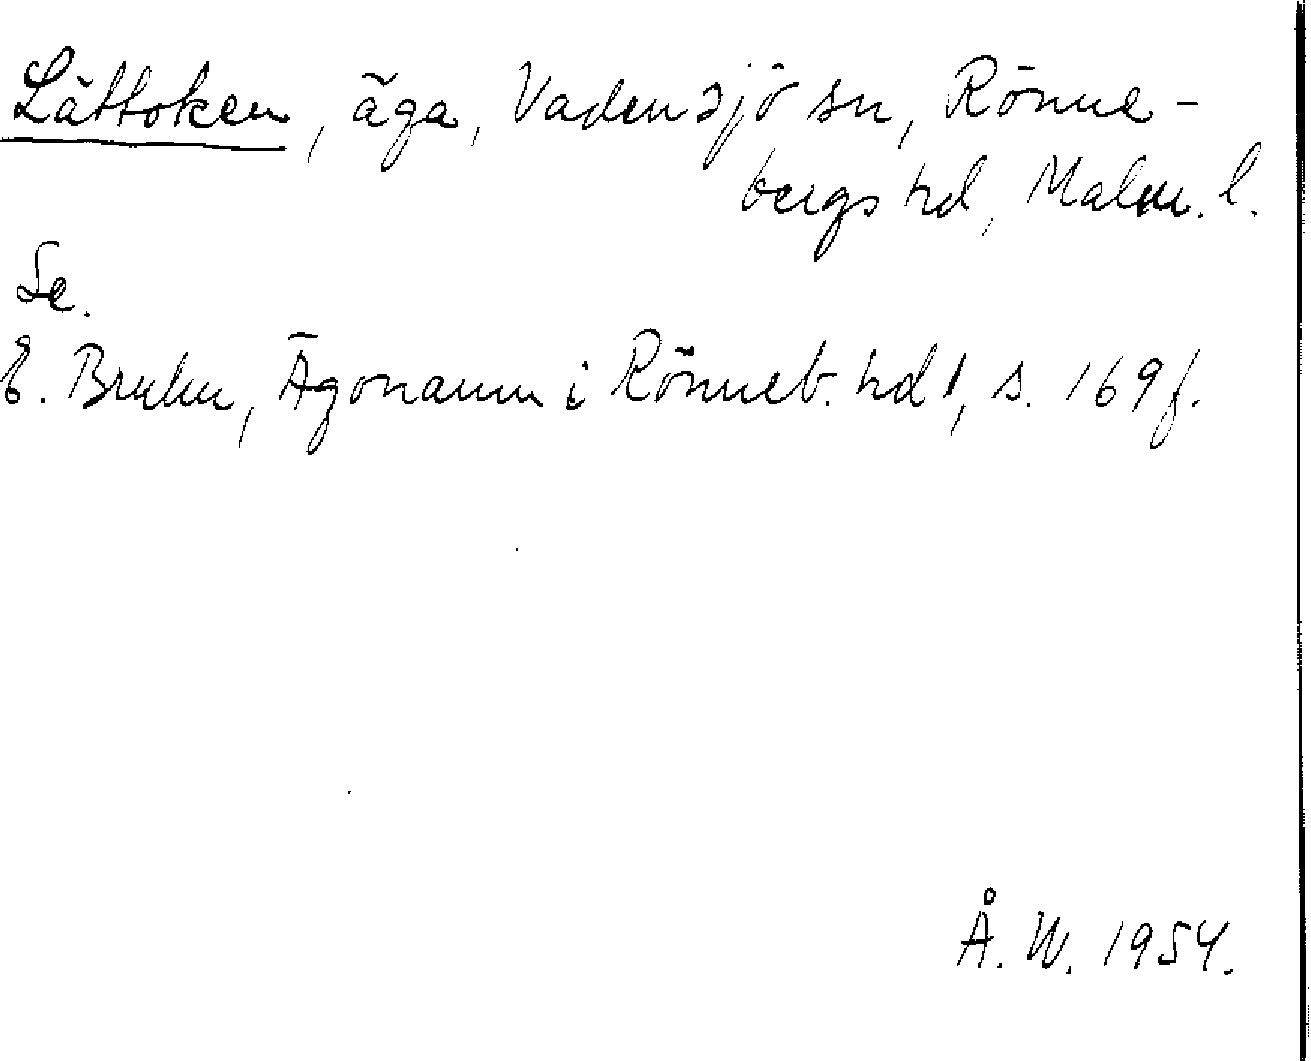 Lättoken, äga, Vadensjö sn, Rönne-
bergs hd, Malm. l.
Se.
E. Bruhn, Ägonamn i Rönneb. hd 1, s. 169 f.
Å. W. 1954.